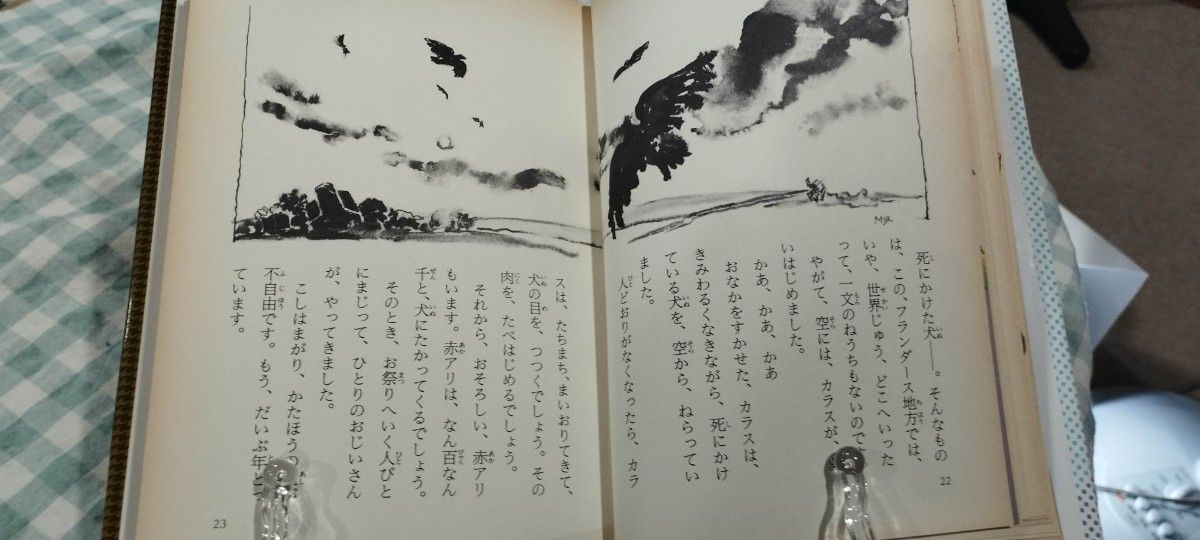 死にかけた犬――。そんなもの
は、この、フランダース地方では、
いや、世界じゅう、どこへいった
って、一文のねうちもないので
やがて、空には、カラスが、
いはじめました。
かあ、かあ、かあ
おなかをすかせた、カラスは、
きみわるくなきながら、死にかけ
ている犬を、空から、ねらってい
ました。
人どおりがなくなったら、カラ
22
スは、たちまち、まいおりてきて、
犬の目を、つつくでしょう。その
肉を、たべはじめるでしょう。
それから、おそろしい、赤アリ
もいます。赤アリは、なん百なん
千と、犬にたかってくるでしょう。
そのとき、お祭りへいく人びと
にまじって、ひとりのおじいさん
が、やってきました。
こしはまがり、かたほうの
不自由です。もう、だいぶ年と
ています。
23